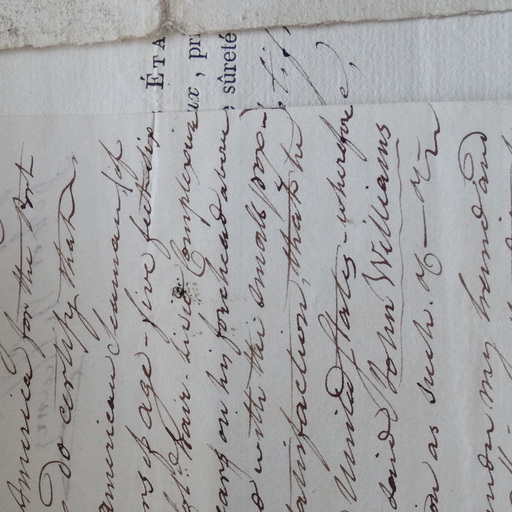 ÉTA
ux, pri
, sûreté
America for the Port
Do certify that
american Seaman of
rs of age - five feet
hair - Complexion
on his forehead above
with the small pox -
atisfaction, that he
United States - wherefore,
said John Williams
on as such.
under my hand and